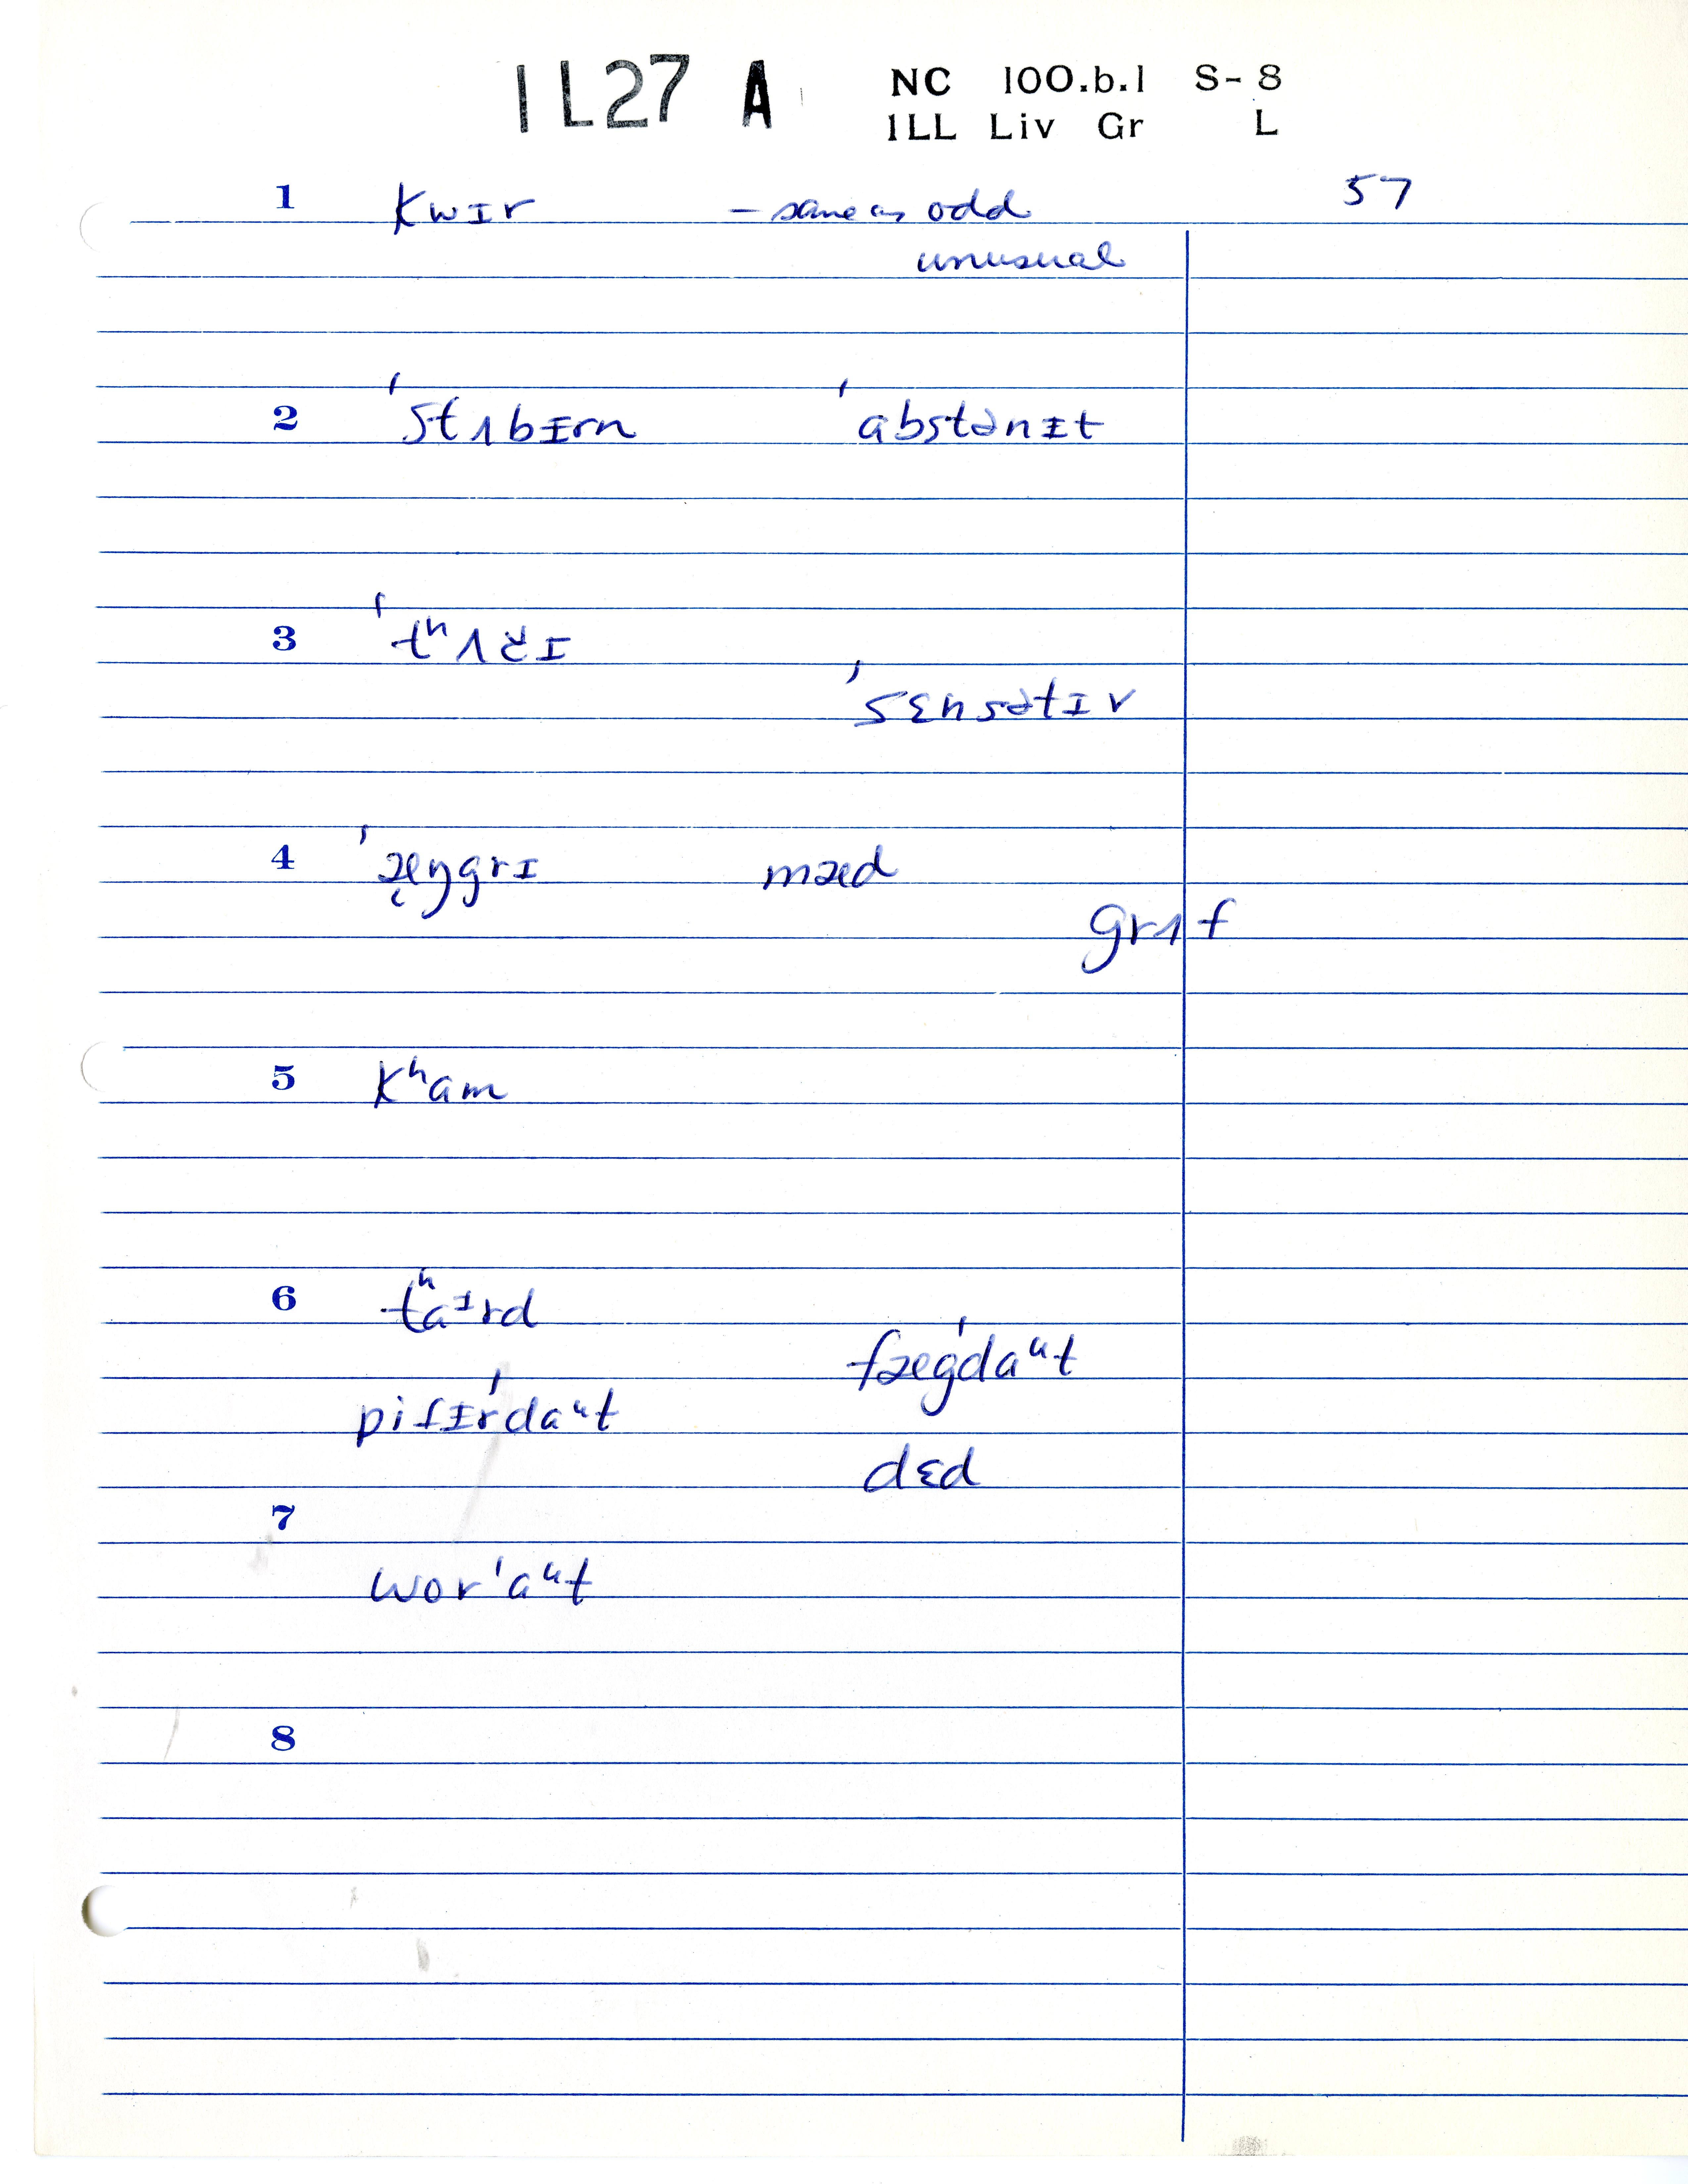 1L27 A NC 100.b.1 S-8
ILL Liv Gr L
57
1 kwɪr – same as odd
unusual
2 ˈstʌbɪrn ˈabstənɪt
3
ˈsɛnsətɪv
4 ˈæŋgrɪ mæd
grʌf
5 kʰam
6 tʰaᶦrd
fægˈdaᵘt
ˈdaᵘt
dɛd
7
worˈaᵘt
8